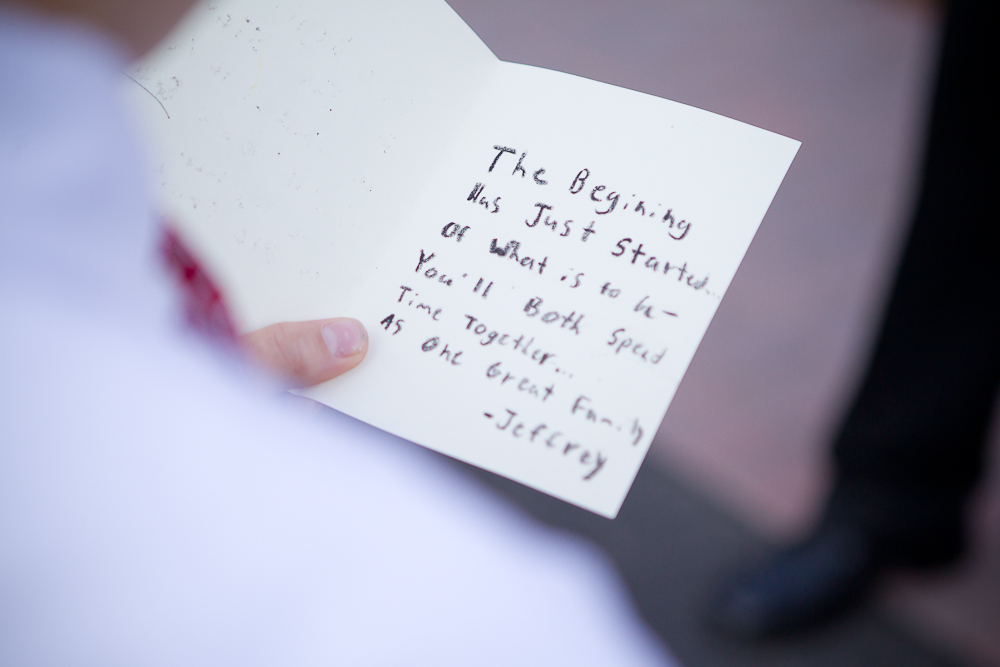 The Begining
Has Just Started...
Of What is to be-
You'll Both Spend
Time Together...
As One Great Family
-Jeffrey